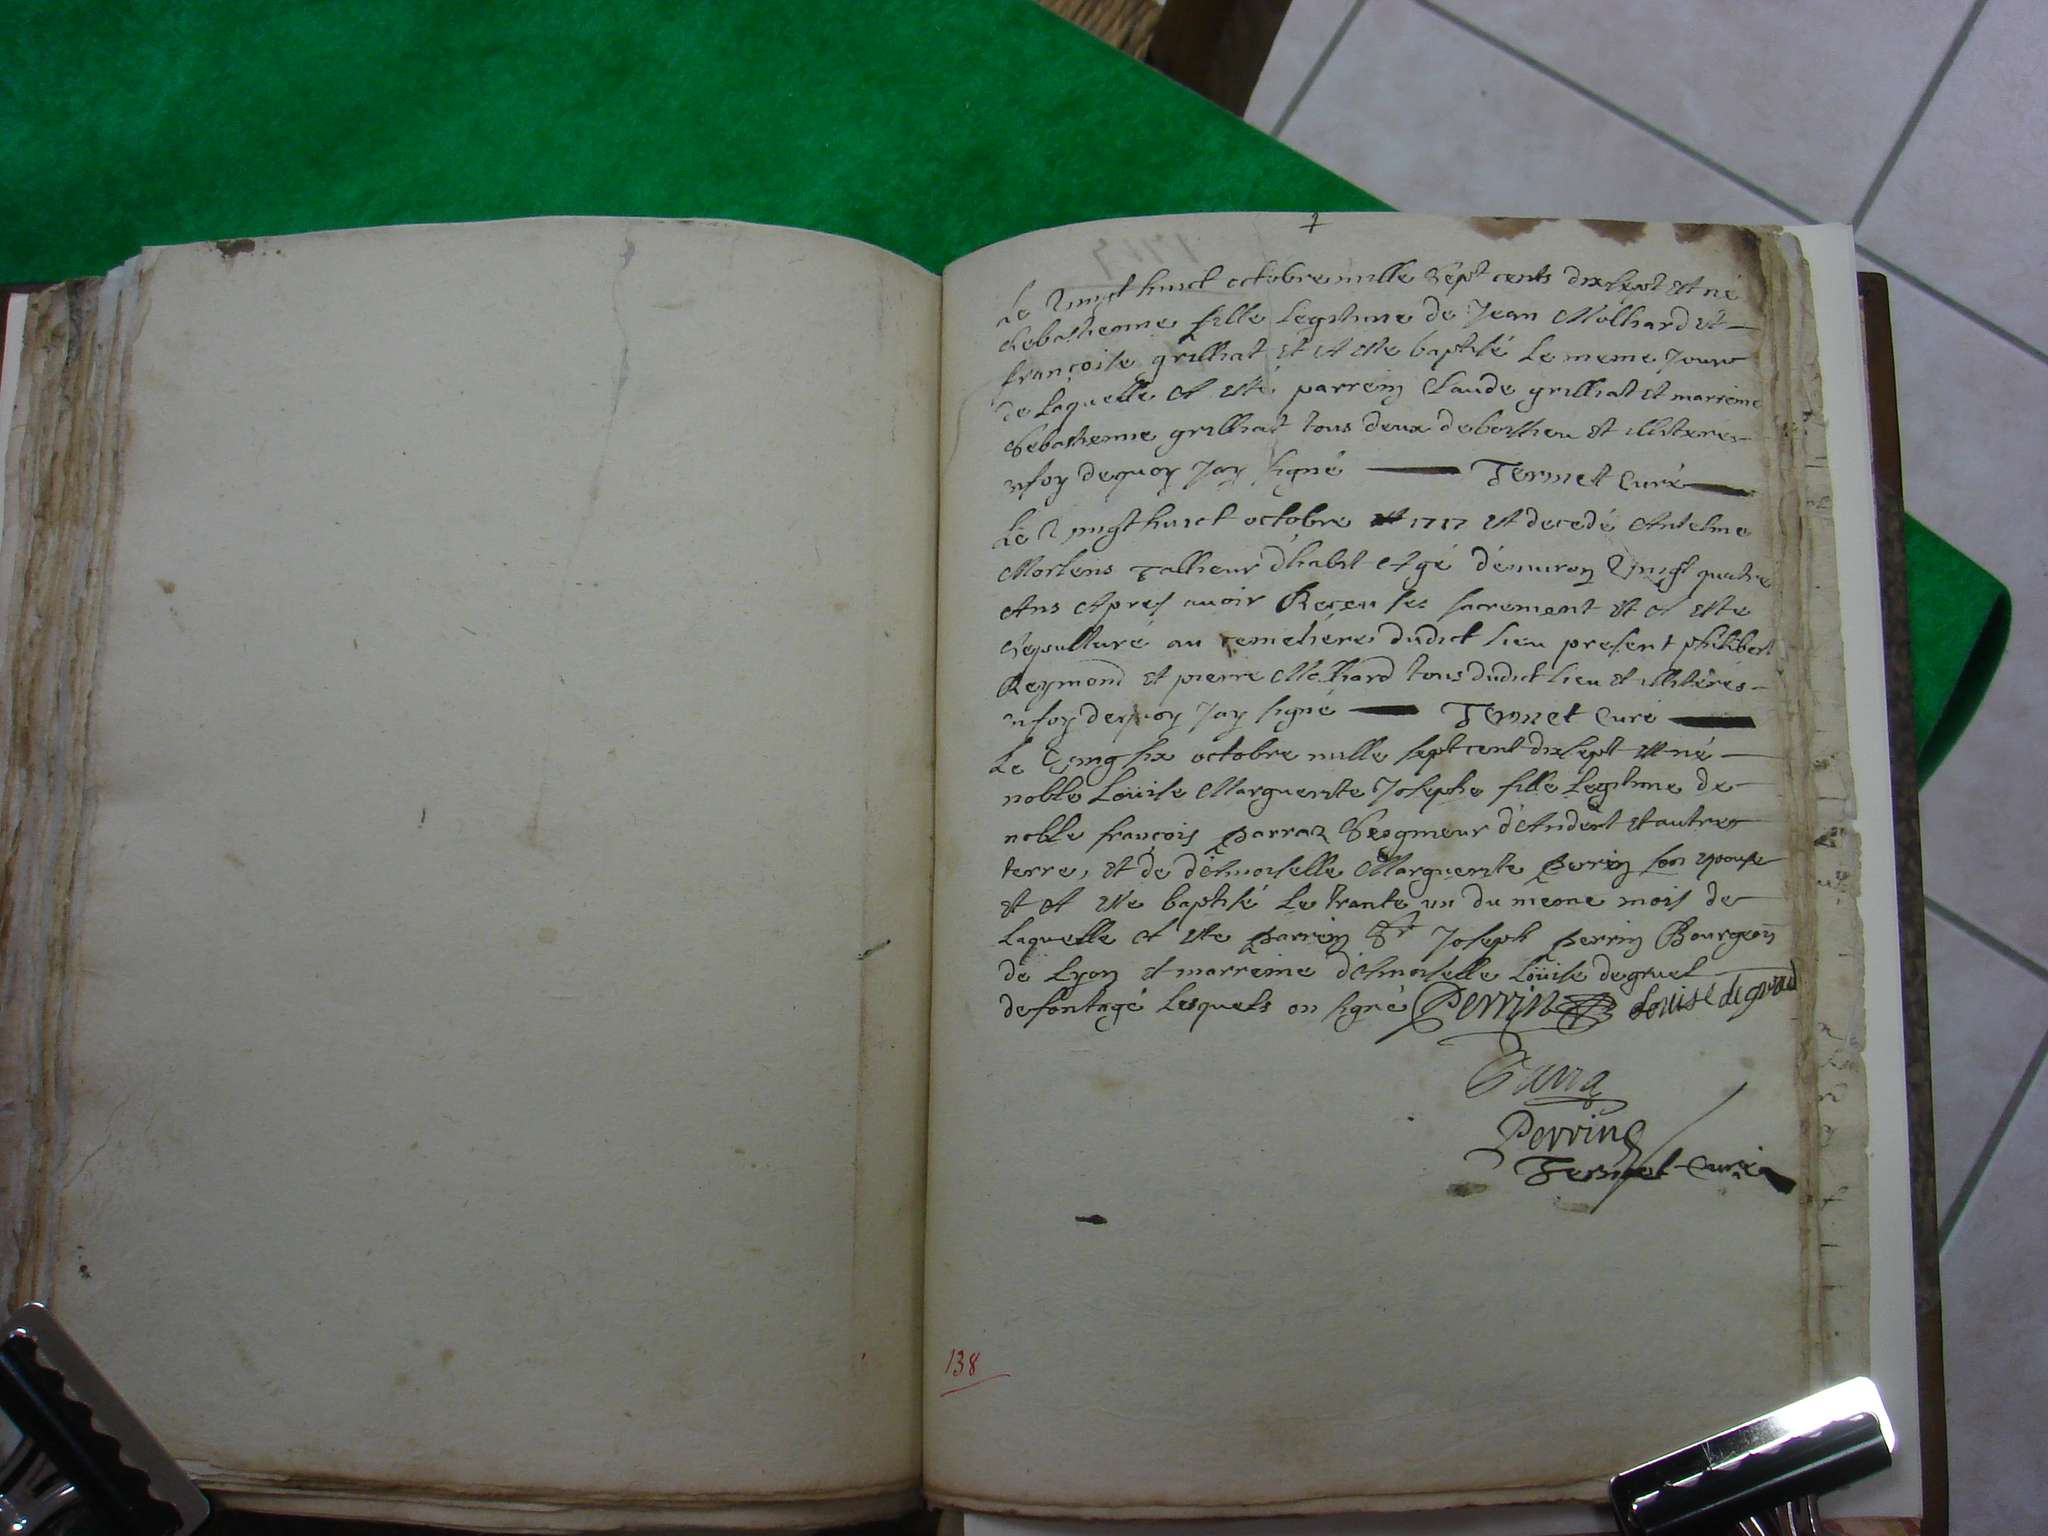 Le vingt huict octobre mille sept cents dixsept est né
Sebastienne fille legitime de Jean Molliard et
françoise grilliat et a este baptisé le meme jour
de laquelle a esté parrein Claude grilliat et marreine
Sebastienne grilliat tous deux et illiteres
nfoy dequoy Jay signé Termet Curé
Le vingt huict octobre 1717 est decedé Antelme
Mortens tallieur d'habit agé d'enuiron vingt quatre
Ans apres auoir Reçeu ses sacrement et a este
sepulturé au cemetiere dudict lieu present philibert
Reymond et pierre Molliard tous dudict lieu et illiterés
nfoy dequoy Jay signé Termet Curé
Le ving six octobre mille sept cent dixsept est né
noble Loüise Marguerite Josephe fille legitime de
noble françois parraz Seigneur d'Andert et autres
terre, et de d'emoiselle Marguerite perrin son epouse
et a este baptisé le trante un du meme mois de
laquelle a este parrein Sr Joseph perrin Bourgeois
de Lyon et marreine d'emoiselle Loüise degruel
defontagé lesquels on signé Perrin Louise de gruel
Parra
Perrin
Termet Curé
138